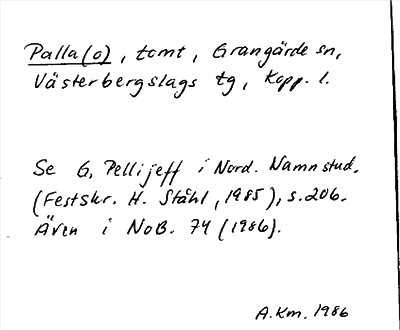 Palla(o), tomt, Grangärde sn,
Västerbergslags tg, Kopp. l.
Se G. Pellijeff i Nord. Namnstud.
(Festskr. H. Ståhl, 1985), s. 206.
Även i NoB. 74 (1986).
A.Km. 1986